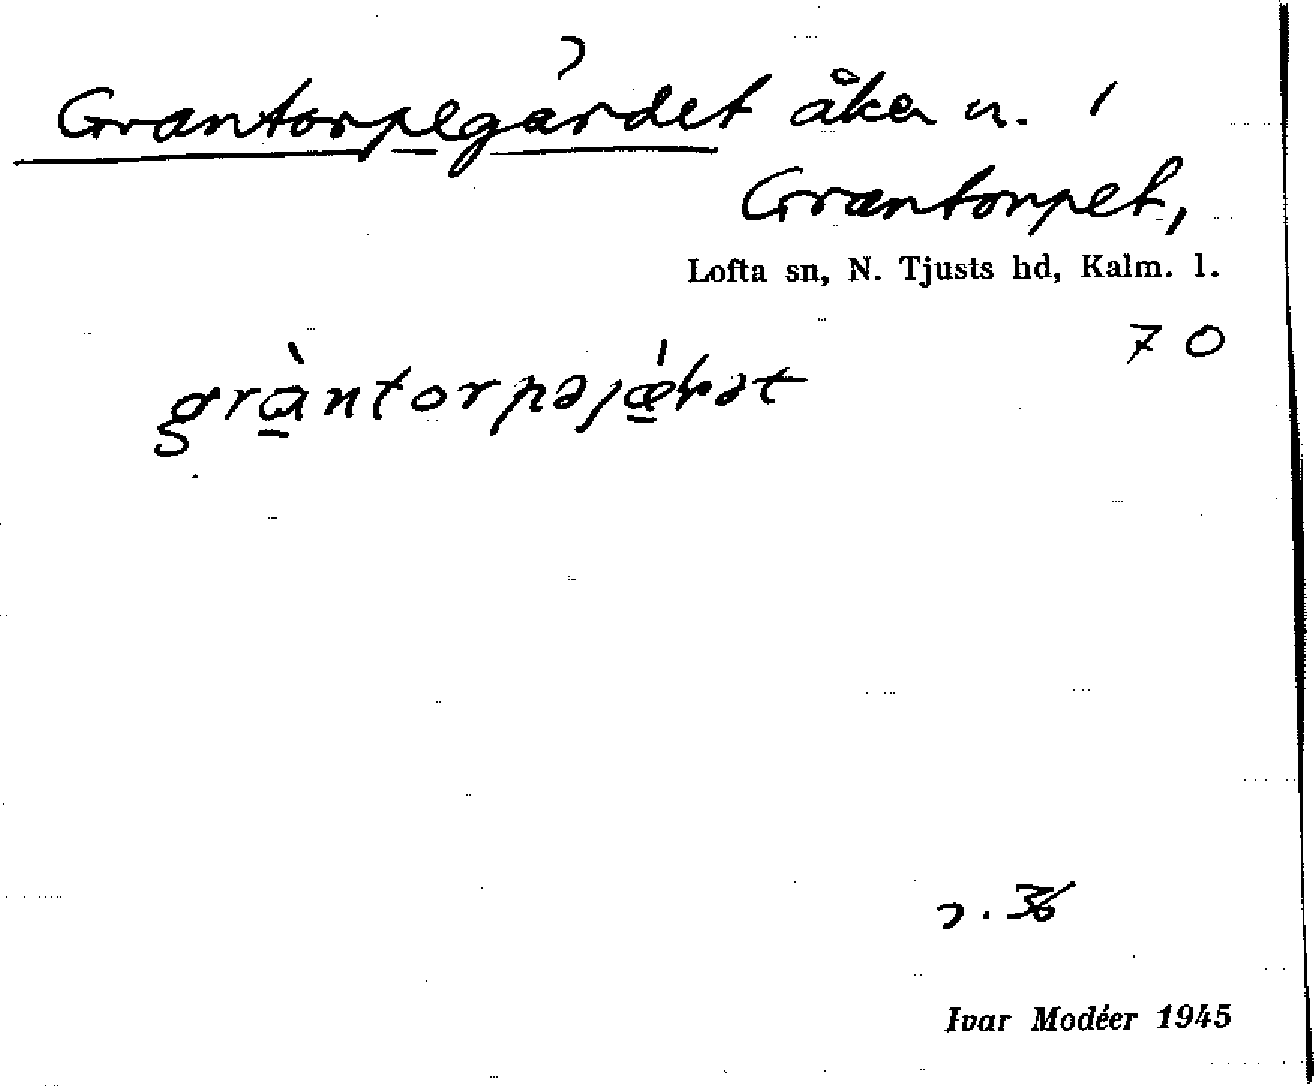 Grantorpegärdet åker u. /
Grantorpet,
Lofta sn, N. Tjusts hd, Kalm. l.
70
gràntorpəjǽɽət
s. 36
Ivar Modéer 1945